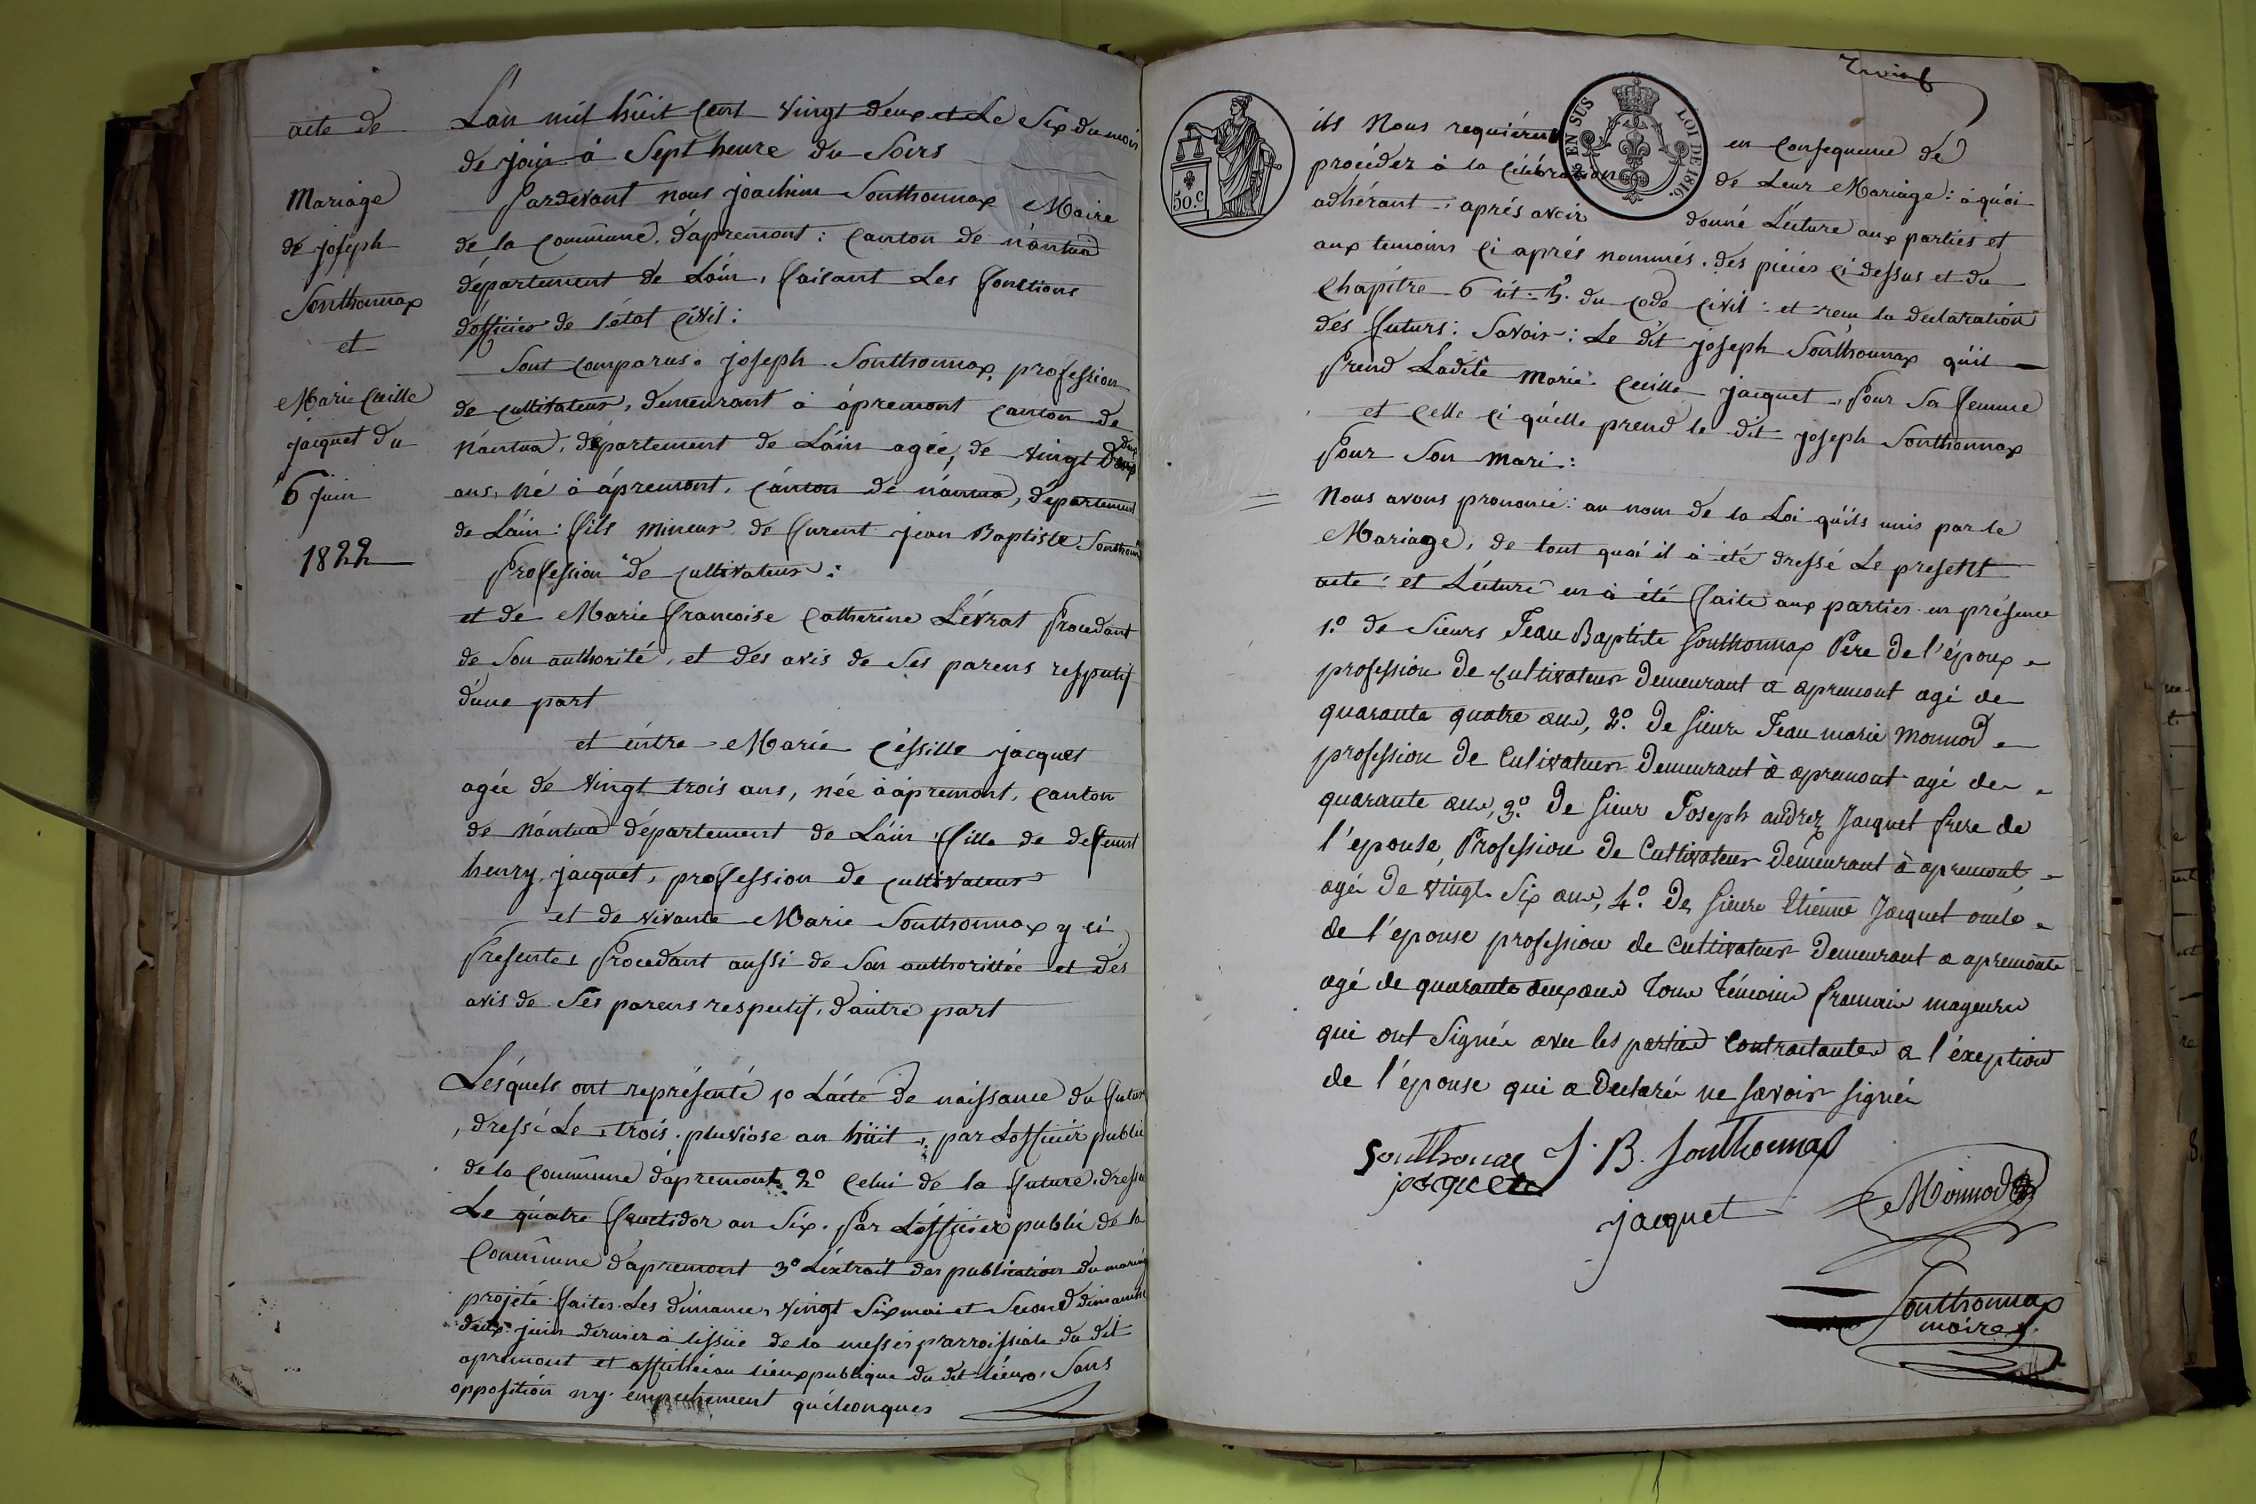 acte de
Mariage
de joseph
Sonthonnax
et
Marie Cecille
jacquet du
6 juin
1822
L'an mil huit Cent vingt deux et Le Six du mois
de juin à Sept heure du Soirs
Pardevant nous joachim Sonthonnax Maire
de la Commune d'apremont : Canton de nantua
département de Láin, faisant Les fonctions
dofficier de l'état Civil :
Sont comparus. joseph Sonthonnax, profession
de cultivateur, demeurant à ápremont Canton de
Nántua, département de Láin agée, de vingt deux
ans, né à ápremont, Canton de nántua, département
de Láin : fils mineur de jean Baptiste Sonthonnax
Profession de cultivateur :
et de Marie francoise Catherine Lévrat Procedant
de Son authorité, et des avis de Ses parens respectif
d'une part
et éntre Marie Céssille jacquet
agée de vingt trois ans, née à ápremont, Canton
de Nántua département de Láin, fille de defeunt
henry jacquet, profession de cultivateur
et de vivante Marie Sonthonnax y ci
Presente, Procedant aussi de Son authorittée et dés
avis de Sés parens respectif, d'autre part
Lesquels ont représenté 1o Lácte de naissance du futur
, dressé Le trois pluviose an hüit, par Lofficier public
de la Commune d'apremont 2o Celui de la future, dressé
Le quatre fructidor an Six. Par Lófficier public de la
Commune d'apremont 3o L'éxtrait des publication du mariage
projeté faites Les dimance, vingt Six mai et Second dimanche
deux juin dernier à lissüe de la messes parroissiale du dit
apremont et affichée au lieux publique du dit lieux, Sans
oppositión ny empechement quélconques
50.C
EN SUS
LOI DE 1816.
ils Nous requiérent en Consequence de
procéder à la Célébration de Leur Mariage : à quói
adhérant, aprés avoir donné Lécture aux parties et
aux temoins ci aprés nommés, des piéces ci dessus et du
Chapitre 6 tit. 5. du Code Civil : et recu la declaration
dés futurs : Savoir : Le dit joseph Sonthonnax quil
Prend Ladite Marie Cecille jacquet, Pour Sa femme
et Celle ci qu'elle prend le dit joseph Sonthonnax
Pour Son Mari :
Nous avons prononcé : au nom de la Loi qu'ils unis par le
Mariage, de tout quoi il à été dressé Le present
acte : et Lécture en à été faite aux parties en présence
1.o de Sieurs Jean Baptiste Sonthonnax Pere De l'époux
profession De cultivateur Demeurant a apremont agé de
quarante quatre ans, 2.o De Sieur Jean marie Monnod
profession De Culivateur Demeurant à apremont agé de
quarante ans, 3.o De Sieur Joseph andrez Jacquet frere de
l'épouse, Profession De Cultivateur Demeurant à apremont
agé De vingt Six ans, 4.o De Sieur Etienne Jacquet oncle
de l'épouse profession de Cultivateur Demeurant a apremont
agé de quarante deux ans Tous Témoins francais mageurs
qui ont Signés avec les parties Contractantes a l'éxeption
de l'épouse qui a Declaré ne Savoir signés
Sonthonax J. B. Sonthonnax
jacquet
jacquet
Monnod
Sonthonnax
maire